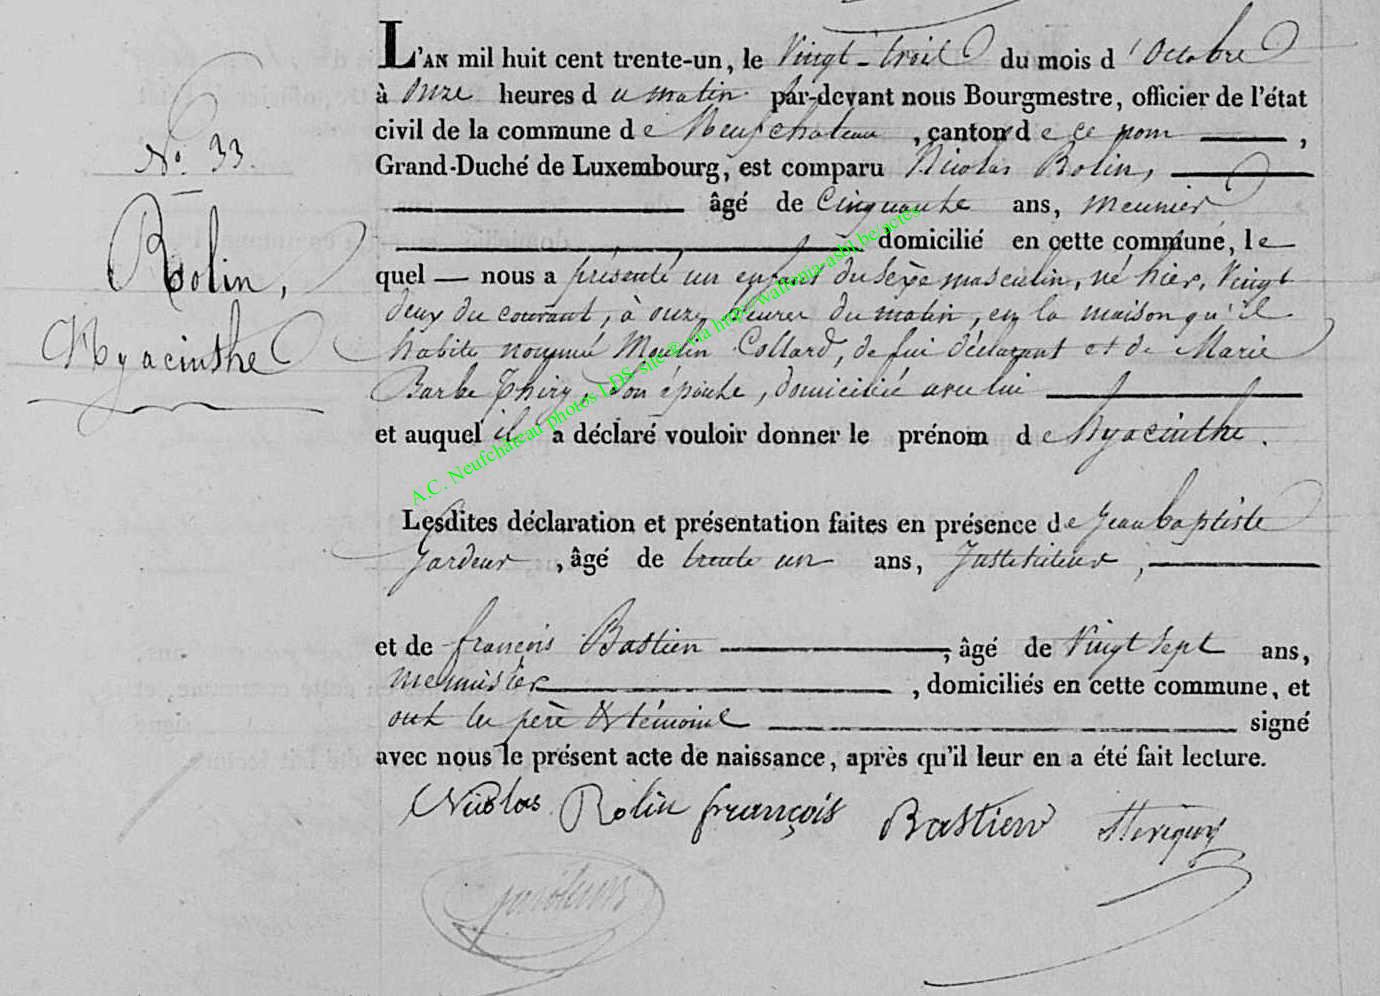 L'AN mil huit cent trente-un, le Vingt-trois du mois d'Octobre
à Onze heures du matin par-devant nous Bourgmestre, officier de l'état
civil de la commune de Neufchateau, canton de ce nom,
N.° 33.
Grand-Duché de Luxembourg, est comparu Nicolas Rolin,
âgé de Cinquante ans, meunier
Rolin,
domicilié en cette commune, le
quel nous a présenté un enfant du Sexe masculin, né hier, Vingt
deux du courant, à onze heures du matin, en la maison qu'il
Hyacinthe
habite nommé Moulin Collard, de lui déclarant et de Marie
Barbe Thiry, son épouse, domiciliée avec lui
et auquel il a déclaré vouloir donner le prénom de Hyacinthe.
A.C. Neufchâteau photos LDS site ® via http://wallonia-asbl.be/actes
Lesdites déclaration et présentation faites en présence de Jean baptiste
Jardeur, âgé de trente un ans, Instituteur,
et de françois Bastien, âgé de Vingt Sept ans,
Menuisier, domiciliés en cette commune, et
ont les père & témoins signé
avec nous le présent acte de naissance, après qu'il leur en a été fait lecture.
Nicolas Rolin françois Bastien